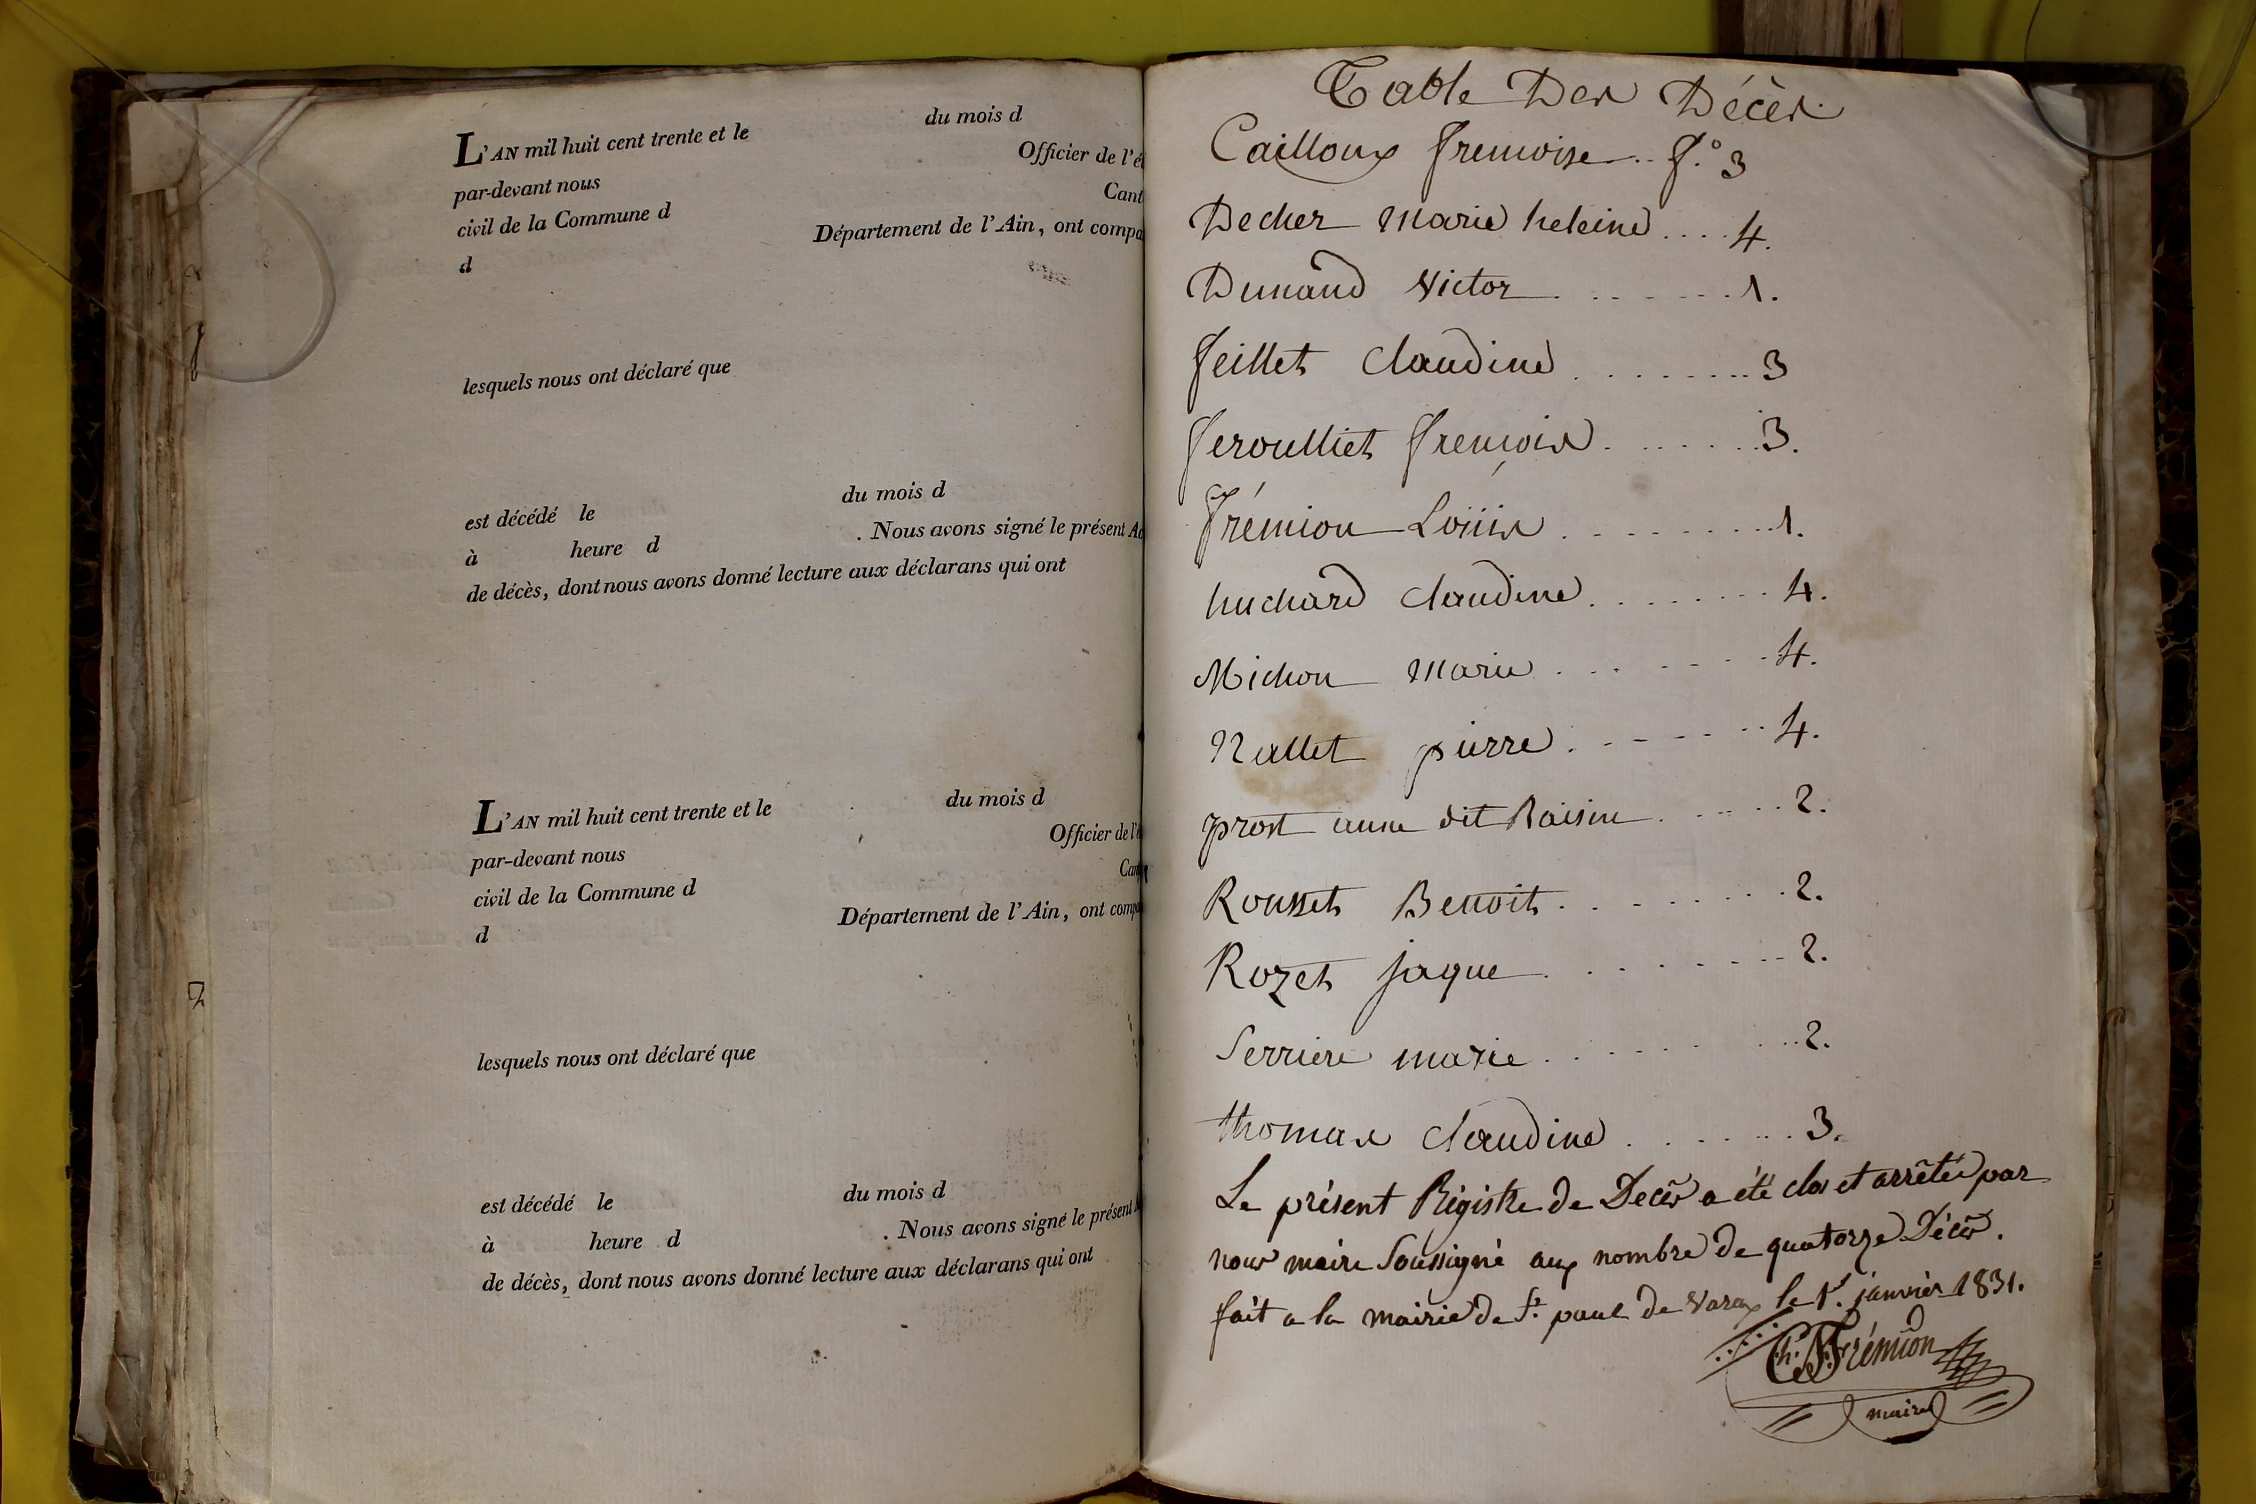 L'AN mil huit cent trente et le du mois d
par-devant nous Officier de l'é
civil de la Commune d Cant
d Département de l'Ain, ont compa
lesquels nous ont déclaré que
est décédé le du mois d
à heure d . Nous avons signé le présent Ac
de décès, dont nous avons donné lecture aux déclarans qui ont
L'AN mil huit cent trente et le du mois d
par-devant nous Officier de l'é
civil de la Commune d Can
d Département de l'Ain, ont compa
lesquels nous ont déclaré que
est décédé le du mois d
à heure d . Nous avons signé le présent A
de décès, dont nous avons donné lecture aux déclarans qui ont
Table Des Décès.
Cailloux frencoise .. f.° 3
Decher Marie heleine .... 4.
Dunand Victor ....... 1.
feillet Claudine ........ 3
feroulliet françois ....... 3.
frémion Loüis ........ 1.
huchard Claudine ........ 4.
Michon Marie ....... 4.
Nallet pierre ....... 4.
prost anne dit Raisin ..... 2.
Rousset Benoit ........ 2.
Rozet jaque ........ 2.
Serriere marie ........ 2.
thomas Claudine ....... 3.
Le présent Régistre de Decès a été clos et arrêtée par
nous maire Soussigné aux nombre de quatorze Décès.
fait a la mairie de St. paul de Varax le 1r. janvier 1831.
Ch. Frémion
maire